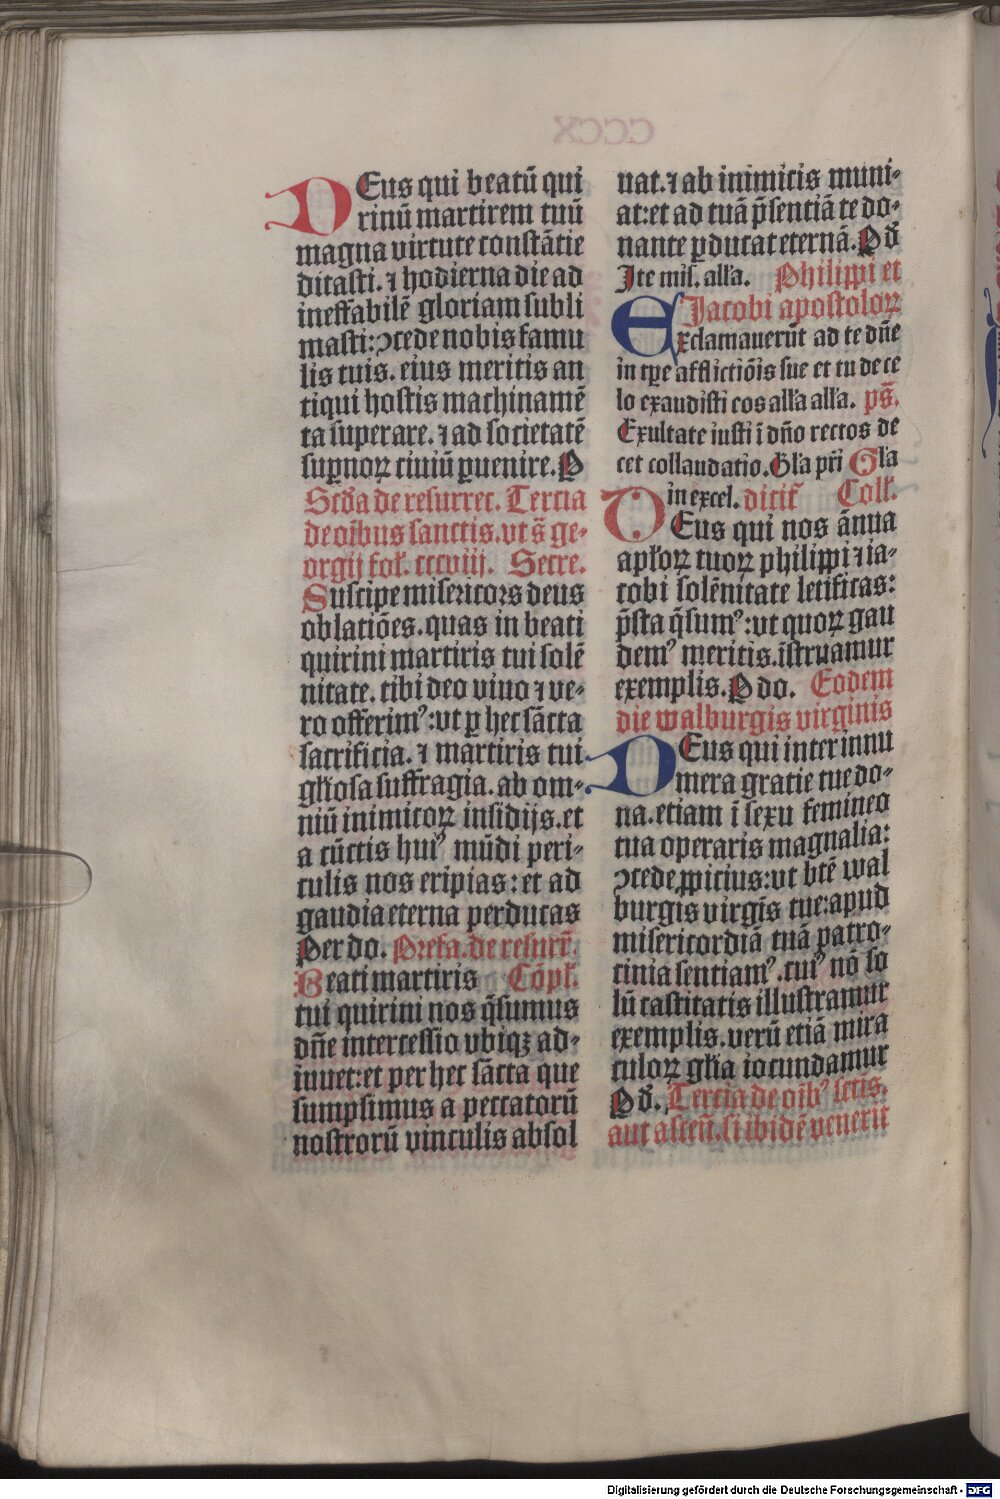 DEus qui beatū qui
rinū martirem tuū
magna virtute constātie
ditasti. ⁊ hodierna die ad
ineffabilē gloriam subli
masti: ꝯcede nobis famu
lis tuis. eius meritis an
tiqui hostis machinamē
ta superare. ⁊ ad societatē
suꝑnoꝝ ciuiū ꝑuenire. P
Scd̄a de resurrec. Tercia
de oībus sanctis. vt s̄ ge-
orgij fol. cccviij. Secre.
Suscipe misericors deus
oblatiōes. quas in beati
quirini martiris tui solē
nitate. tibi deo viuo ⁊ ve-
ro offerimꝰ: vt ꝑ hec sācta
sacrificia. ⁊ martiris tui
gl̄iosa suffragia. ab om-
niū inimicoꝝ insidijs. et
a cūctis huiꝰ mūdi peri-
culis nos eripias: et ad
gaudia eterna perducas
Per do. Prefa. de resurr̄.
Beati martiris Cōpł.
tui quirini nos q̄sumus
dn̄e intercessio vbiqꝫ ad-
iuuet: et per hec sācta que
sumpsimus a peccatorū
nostrorū vinculis absol
nat. ⁊ ab inimicis muni-
at: et ad tuā p̄sentiā te do-
nante ꝑducat eternā. P d̄
Ite mis̄. alła. Philippi et
Jacobi apostoloꝝ
Exclamauerūt ad te dn̄e
in tꝑe afflictiōis sue et tu de ce
lo exaudisti eos alła alła. ps̄.
Exultate iusti ī dn̄o rectos de
cet collaudatio. Gła pr̄i Gła
in excel. dicit̄ Coll̄.
DEus qui nos ānua
apłoꝝ tuoꝝ philippi ⁊ ia-
cobi solēnitate letificas:
p̄sta q̄sumꝰ: vt quoꝝ gau
demꝰ meritis. īstruamur
exemplis. P do. Eodem
die walburgis virginis
DEus qui inter innu
mera gratie tue do-
na. etiam ī sexu femineo
tua operaris magnalia:
ꝯcede ꝓpicius: vt btē wal
burgis virgīs tue: apud
misericordiā tuā patro-
cinia sentiamꝰ. cuiꝰ nō so
lū castitatis illustramur
exemplis. verū etiā mira
culoꝝ gl̄ia iocundamur
P d̄. Tercia de oībꝰ sctis.
aut ascēn̄. si ibidē venerit
Digitalisierung gefördert durch die Deutsche Forschungsgemeinschaft - DFG